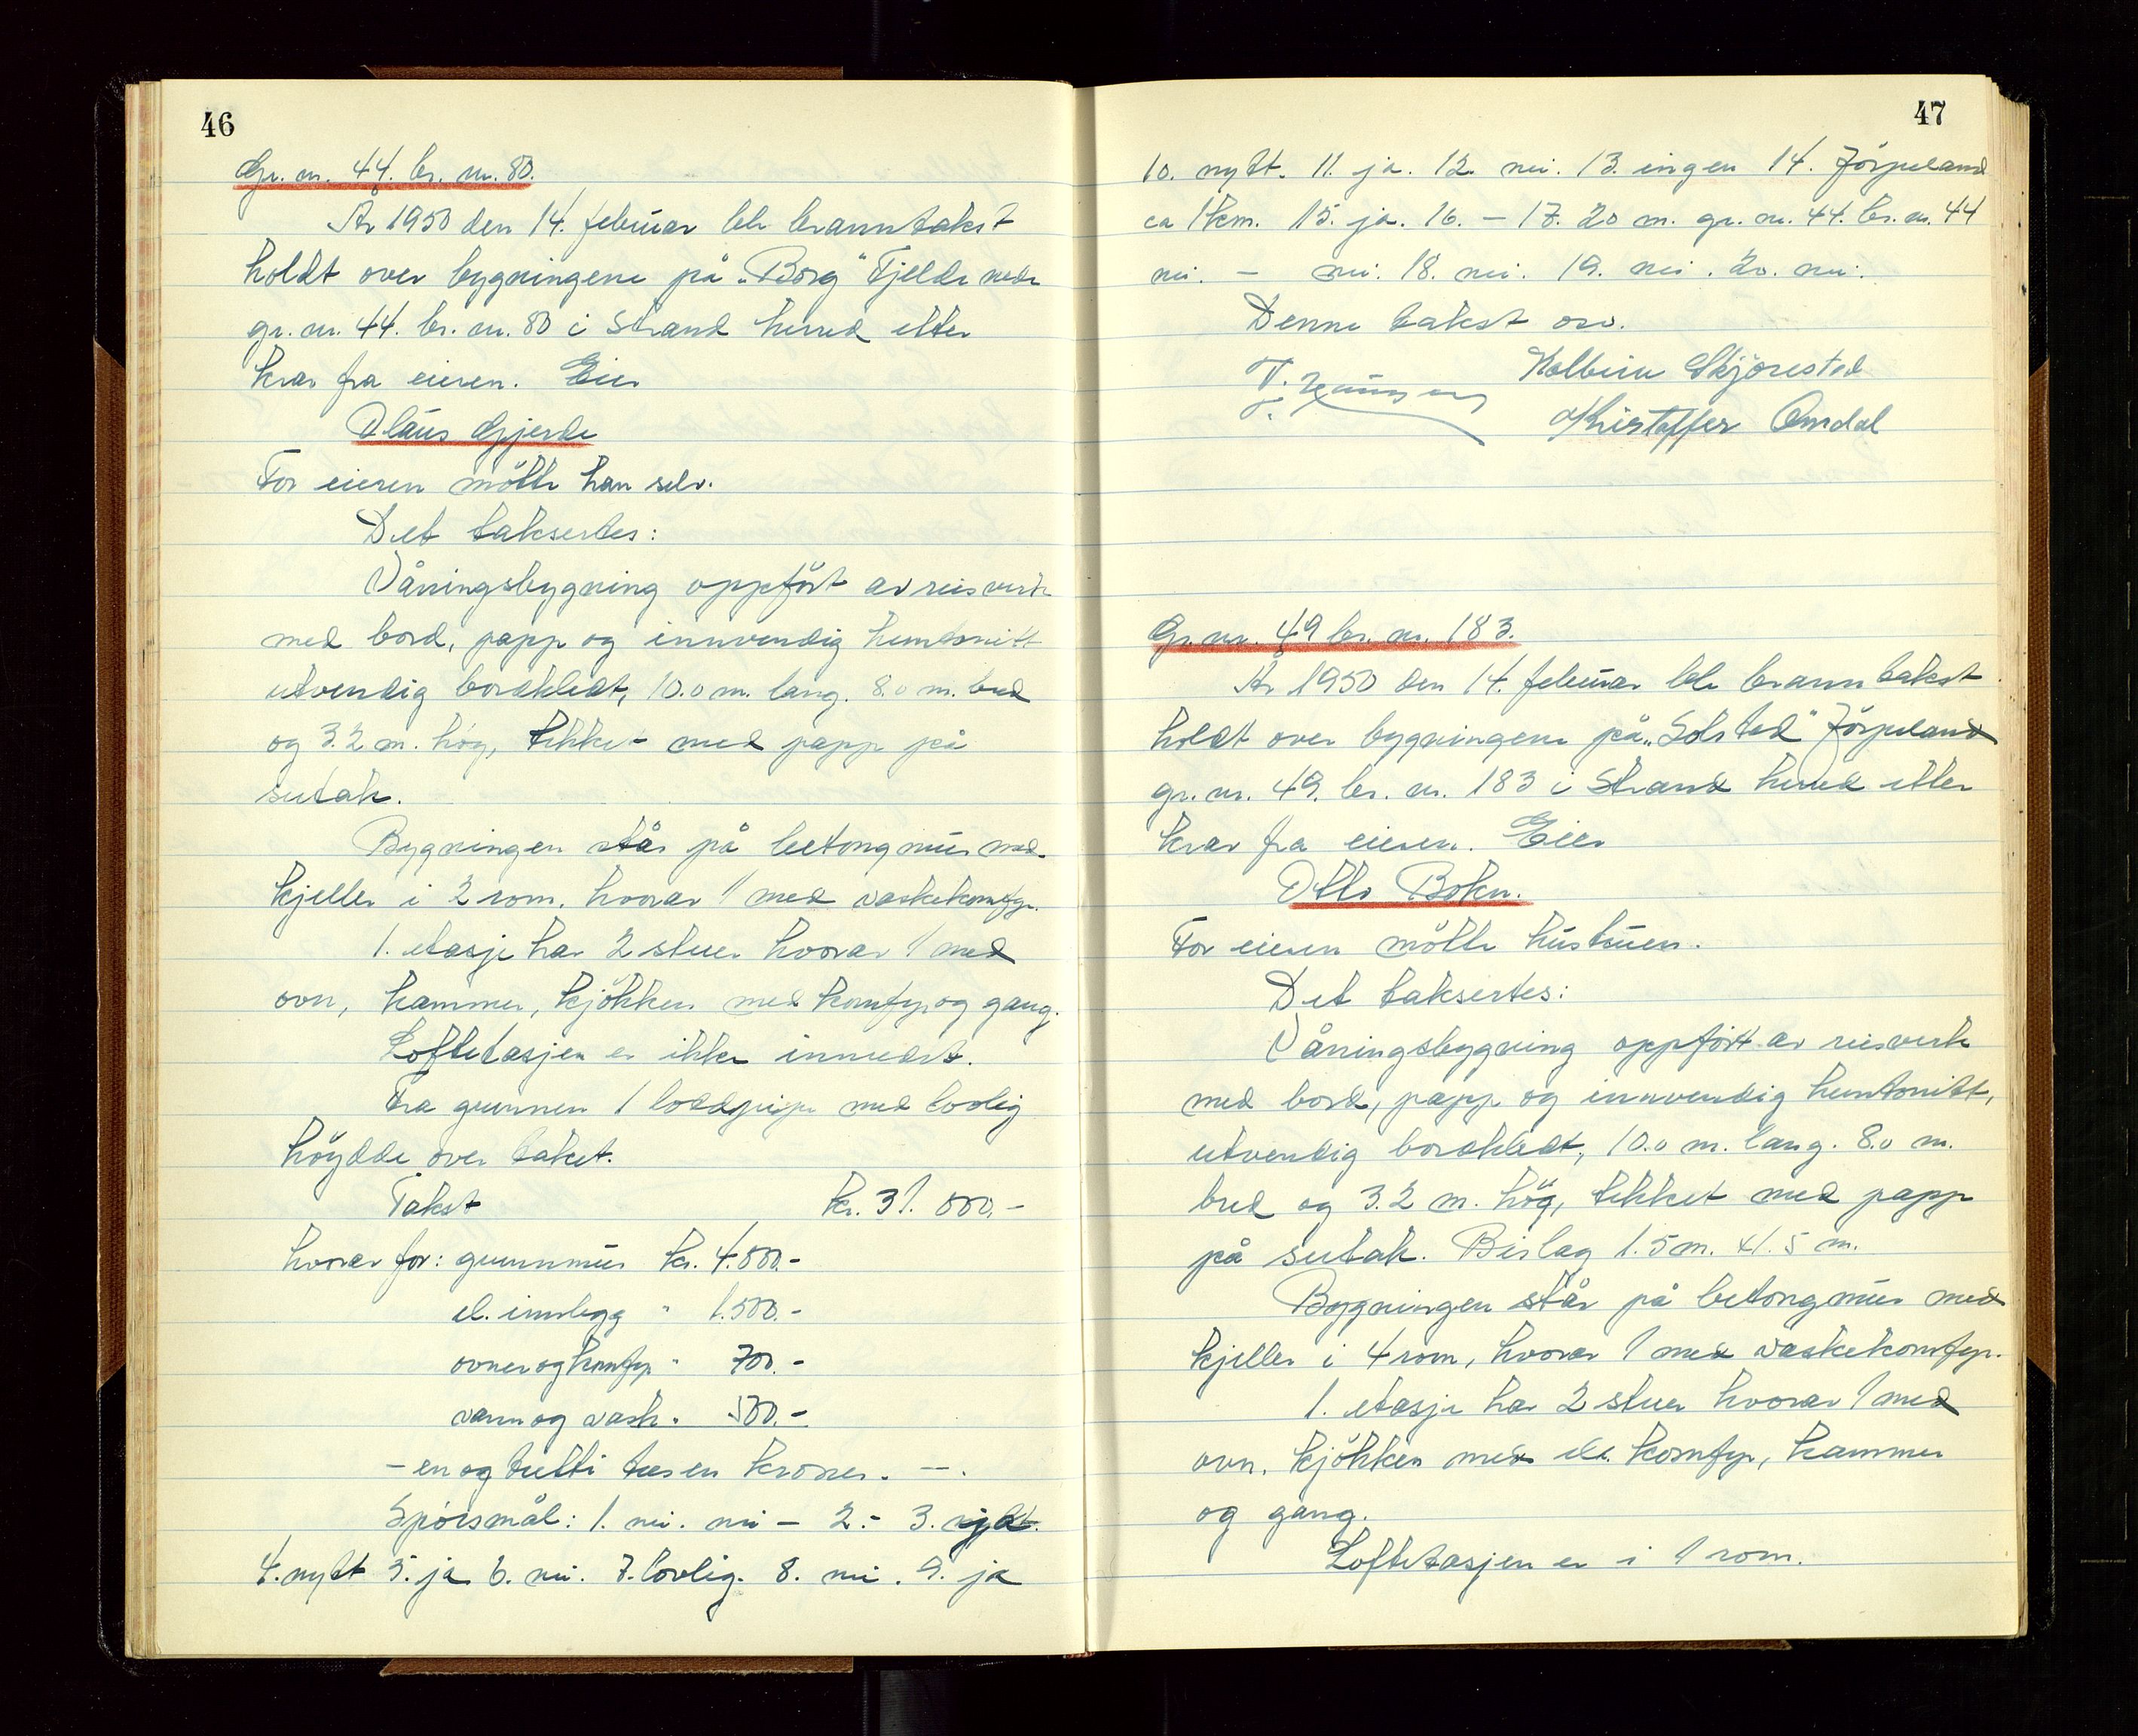 46
Gr. nr. 44. br. nr. 80.
År 1950 den 14. februar ble branntakst
holdt over bygningene på „Borg" Fjelde nedre
gr. nr. 44. br. nr. 80 i Strand herred etter
krav fra eieren. Eier
Olaus Gjerde
For eieren mötte han selv.
Det taksertes:
Våningsbygning oppfört av reisverk
med bord, papp og innvendig huntonitt
utvendig bordkledt, 10.0 m. lang. 8.0 m. bred
og 3.2 m. hög, tekket med papp på
sutak.
Bygningen står på betongmur med
kjeller i 2 rom. hvorav 1 med vaskekomfyr.
1. etasje har 2 stuer hvorav 1 med
ovn, kammer, kjökken med komfyr og gang.
Loftetasjen er ikke innredet.
Fra grunnen 1 loddpipe med lovlig
höydde over taket.
Takst kr. 31.000.-
hvorav for: grunnmur kr. 4.000.-
el. innlegg " 1.500.-
ovner og komfyr " 700.-
vann og vask " 500.-
- en og tretti tusen kroner. -.
Spörsmål: 1. nei. nei - 2. - 3. nytt.
4. nytt 5. ja 6. nei. 7. lovlig. 8. nei. 9. ja
47
10. nytt. 11. ja. 12. nei. 13. ingen 14. Jörpeland
ca 1 km. 15. ja. 16. - 17. 20 m. gr. nr. 44. br. nr. 44
nei. - nei. 18. nei. 19. nei. 20. nei.
Denne takst osv.
Kolbein Skjörestad
Kristoffer Omdal
Gr. nr. 49 br. nr. 183.
År 1950 den 14. februar ble branntakst
holdt over bygningene på „Solstad" Jörpeland
gr. nr. 49. br. nr. 183 i Strand herred etter
krav fra eieren. Eier
Otto Bokn.
For eieren mötte hustruen.
Det taksertes:
Våningsbygning oppfört av reisverk
med bord, papp og innvendig huntonitt,
utvendig bordkledt, 10.0 m. lang. 8.0 m.
bred og 3.2 m. hög, tekket med papp
på sutak. Bislag 1.5 m. x 1.5 m.
Bygningen står på betongmur med
kjeller i 4 rom, hvorav 1 med vaskekomfyr.
1. etasje har 2 stuer hvorav 1 med
ovn. kjökken med el. komfyr, kammer
og gang.
Loftetasjen er i 1 rom.